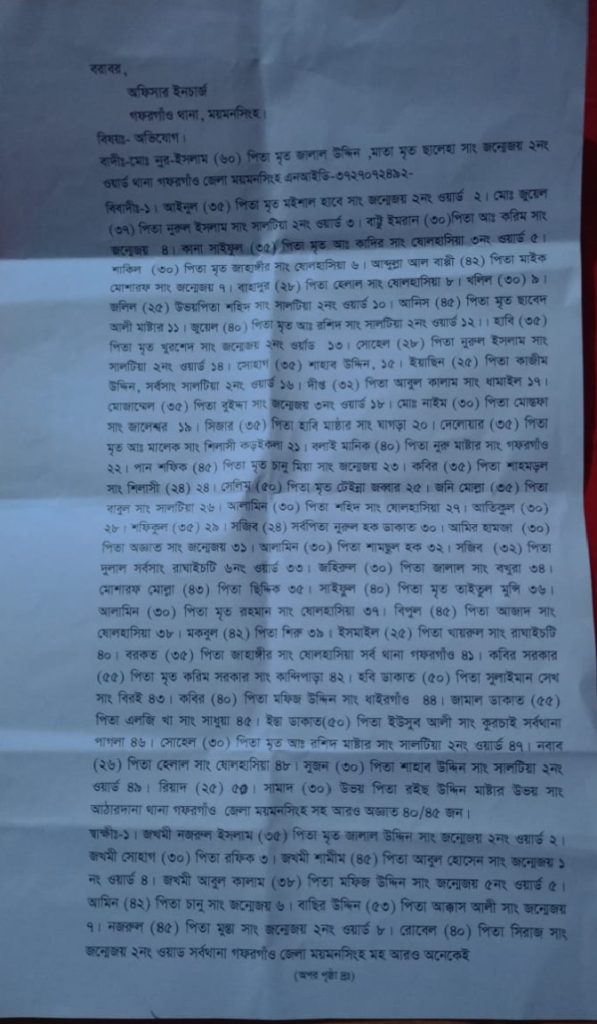 বরাবর,
অফিসার ইনচার্জ
গফরগাঁও থানা, ময়মনসিংহ।
বিষয়ঃ- অভিযোগ।
বাদীঃ-মোঃ নুর-ইসলাম (৬০) পিতা মৃত জালাল উদ্দিন ,মাতা মৃত ছালেহা সাং জন্মেজয় ২নং
ওয়ার্ড থানা গফরগাঁও জেলা ময়মনসিংহ এনআইডি-৩৭২৭০৭২৪৯২-
বিবাদীঃ-১। আইনুল (৩৫) পিতা মৃত মইশাল হাবে সাং জন্মেজয় ২নং ওয়ার্ড ২। মোঃ জুয়েল
(৩৭) পিতা নুরুল ইসলাম সাং সালটিয়া ২নং ওয়ার্ড ৩। বাট্টু ইমরান (৩০)পিতা আঃ করিম সাং
জন্মেজয় ৪। কানা সাইফুল (৩৫) পিতা মৃত আঃ কাদির সাং ষোলহাসিয়া ৩নং ওয়ার্ড ৫।
শাকিল (৩০) পিতা মৃত জাহাঙ্গীর সাং ষোলহাসিয়া ৬। আব্দুল্লা আল বাপ্পী (৪২) পিতা মাইক
মোশারফ সাং জন্মেজয় ৭। বাহানুর (২৮) পিতা হেলাল সাং ষোলহাসিয়া ৮। খলিল (৩০) ৯।
জলিল (২৫) উভয়পিতা শহিদ সাং সালটিয়া ২নং ওয়ার্ড ১০। আনিস (৪৫) পিতা মৃত ছাবেদ
আলী মাষ্টার ১১। জুয়েল (৪০) পিতা মৃত আঃ রশিদ সাং সালটিয়া ২নং ওয়ার্ড ১২।। হাবি (৩৫)
পিতা মৃত খুরশেদ সাং জন্মেজয় ২নং ওর্য়াড ১৩। সোহেল (২৮) পিতা নুরুল ইসলাম সাং
সালটিয়া ২নং ওয়ার্ড ১৪। সোহাগ (৩৫) শাহাব উদ্দিন, ১৫। ইয়াছিন (২৫) পিতা কাজীম
উদ্দিন, সর্বসাং সালটিয়া ২নং ওয়ার্ড ১৬। দীপ্ত (৩২) পিতা আবুল কালাম সাং ধামাইল ১৭।
মোজাম্মেল (৩৫) পিতা বুইদ্দা সাং জন্মেজয় ৩নং ওয়ার্ড ১৮। মোঃ নাইম (৩০) পিতা মোস্তফা
সাং জালেশ্বর ১৯। সিজার (৩৫) পিতা হাবি মাষ্টার সাং ঘাগড়া ২০। দেলোয়ার (৩৫) পিতা
মৃত আঃ মালেক সাং শিলাসী কড়ইকলা ২১। বলাই মানিক (৪০) পিতা নুরু মাষ্টার সাং গফরগাঁও
২২। পান শফিক (৪৫) পিতা মৃত চানু মিয়া সাং জন্মেজয় ২৩। কবির (৩৫) পিতা শাহমড়ল
সাং শিলাসী (২৪) ২৪। সেলিম (৫০) পিতা মৃত টেইন্না জব্বার ২৫। জনি মোল্লা (৩৫) পিতা
বাবুল সাং সালটিয়া ২৬। আলামিন (৩০) পিতা শহিদ সাং ষোলহাসিয়া ২৭। আতিকুল (৩০)
২৮। শফিকুল (৩৫) ২৯। সজিব (২৪) সর্বপিতা নুরুল হক ডাকাত ৩০। আমির হামজা (৩০)
পিতা অজ্ঞাত সাং জন্মেজয় ৩১। আলামিন (৩০) পিতা শামছুল হক ৩২। সজিব (৩২) পিতা
দুলাল সর্বসাং রাঘাইচটি ৬নং ওয়ার্ড ৩৩। জহিরুল (৩০) পিতা জালাল সাং বখুরা ৩৪।
মোশারফ মোল্লা (৪৩) পিতা ছিদ্দিক ৩৫। সাইফুল (৪০) পিতা মৃত তাইতুল মুন্সি ৩৬।
আলামিন (৩০) পিতা মৃত রহমান সাং ষোলহাসিয়া ৩৭। বিপুল (৪৫) পিতা আজাদ সাং
ষোলহাসিয়া ৩৮। মকবুল (৪২) পিতা শিরু ৩৯। ইসমাইল (২৫) পিতা খায়রুল সাং রাঘাইচটি
৪০। বরকত (৩৫) পিতা জাহাঙ্গীর সাং ষোলহাসিয়া সর্ব থানা গফরগাঁও ৪১। কবির সরকার
(৫৫) পিতা মৃত করিম সরকার সাং কান্দিপাড়া ৪২। হবি ডাকাত (৫০) পিতা সুলাইমান সেখ
সাং বিরই ৪৩। কবির (৪০) পিতা মফিজ উদ্দিন সাং ধাইরগাঁও ৪৪। জামাল ডাকাত (৫৫)
পিতা এলজি খা সাং সাধুয়া ৪৫। ইন্তা ডাকাত(৫০) পিতা ইউসুব আলী সাং কুরচাই সর্বথানা
পাগলা ৪৬। সোহেল (৩০) পিতা মৃত আঃ রশিদ মাষ্টার সাং সালটিয়া ২নং ওয়ার্ড ৪৭। নবাব
(২৬) পিতা হেলাল সাং ষোলহাসিয়া ৪৮। সুজন (৩০) পিতা শাহাব উদ্দিন সাং সালটিয়া ২নং
ওয়ার্ড ৪৯। রিয়াদ (২৫) ৫০। সামাদ (৩০) উভয় পিতা রইছ উদ্দিন মাষ্টার উভয় সাং
আঠারদানা থানা গফরগাঁও জেলা ময়মনসিংহ সহ আরও অজ্ঞাত ৪০/৪৫ জন।
স্বাক্ষীঃ-১। জখমী নজরুল ইসলাম (৩৫) পিতা মৃত জালাল উদ্দিন সাং জন্মেজয় ২নং ওয়ার্ড ২।
জখমী সোহাগ (৩০) পিতা রফিক ৩। জখমী শামীম (৪৫) পিতা আবুল হোসেন সাং জন্মেজয় ১
নং ওয়ার্ড ৪। জখমী আবুল কালাম (৩৮) পিতা মফিজ উদ্দিন সাং জন্মেজয় ৫নং ওয়ার্ড ৫।
আমিন (৪২) পিতা চানু সাং জন্মেজয় ৬। বাছির উদ্দিন (৫৩) পিতা আক্কাস আলী সাং জন্মেজয়
৭। নজরুল (৪৫) পিতা মুন্তা সাং জন্মেজয় ২নং ওয়ার্ড ৮। রোবেল (৪০) পিতা সিরাজ সাং
জন্মেজয় ২নং ওয়াড সর্বথানা গফরগাঁও জেলা ময়মনসিংহ মহ আরও অনেকেই
(অপর পৃষ্ঠা দ্রঃ)